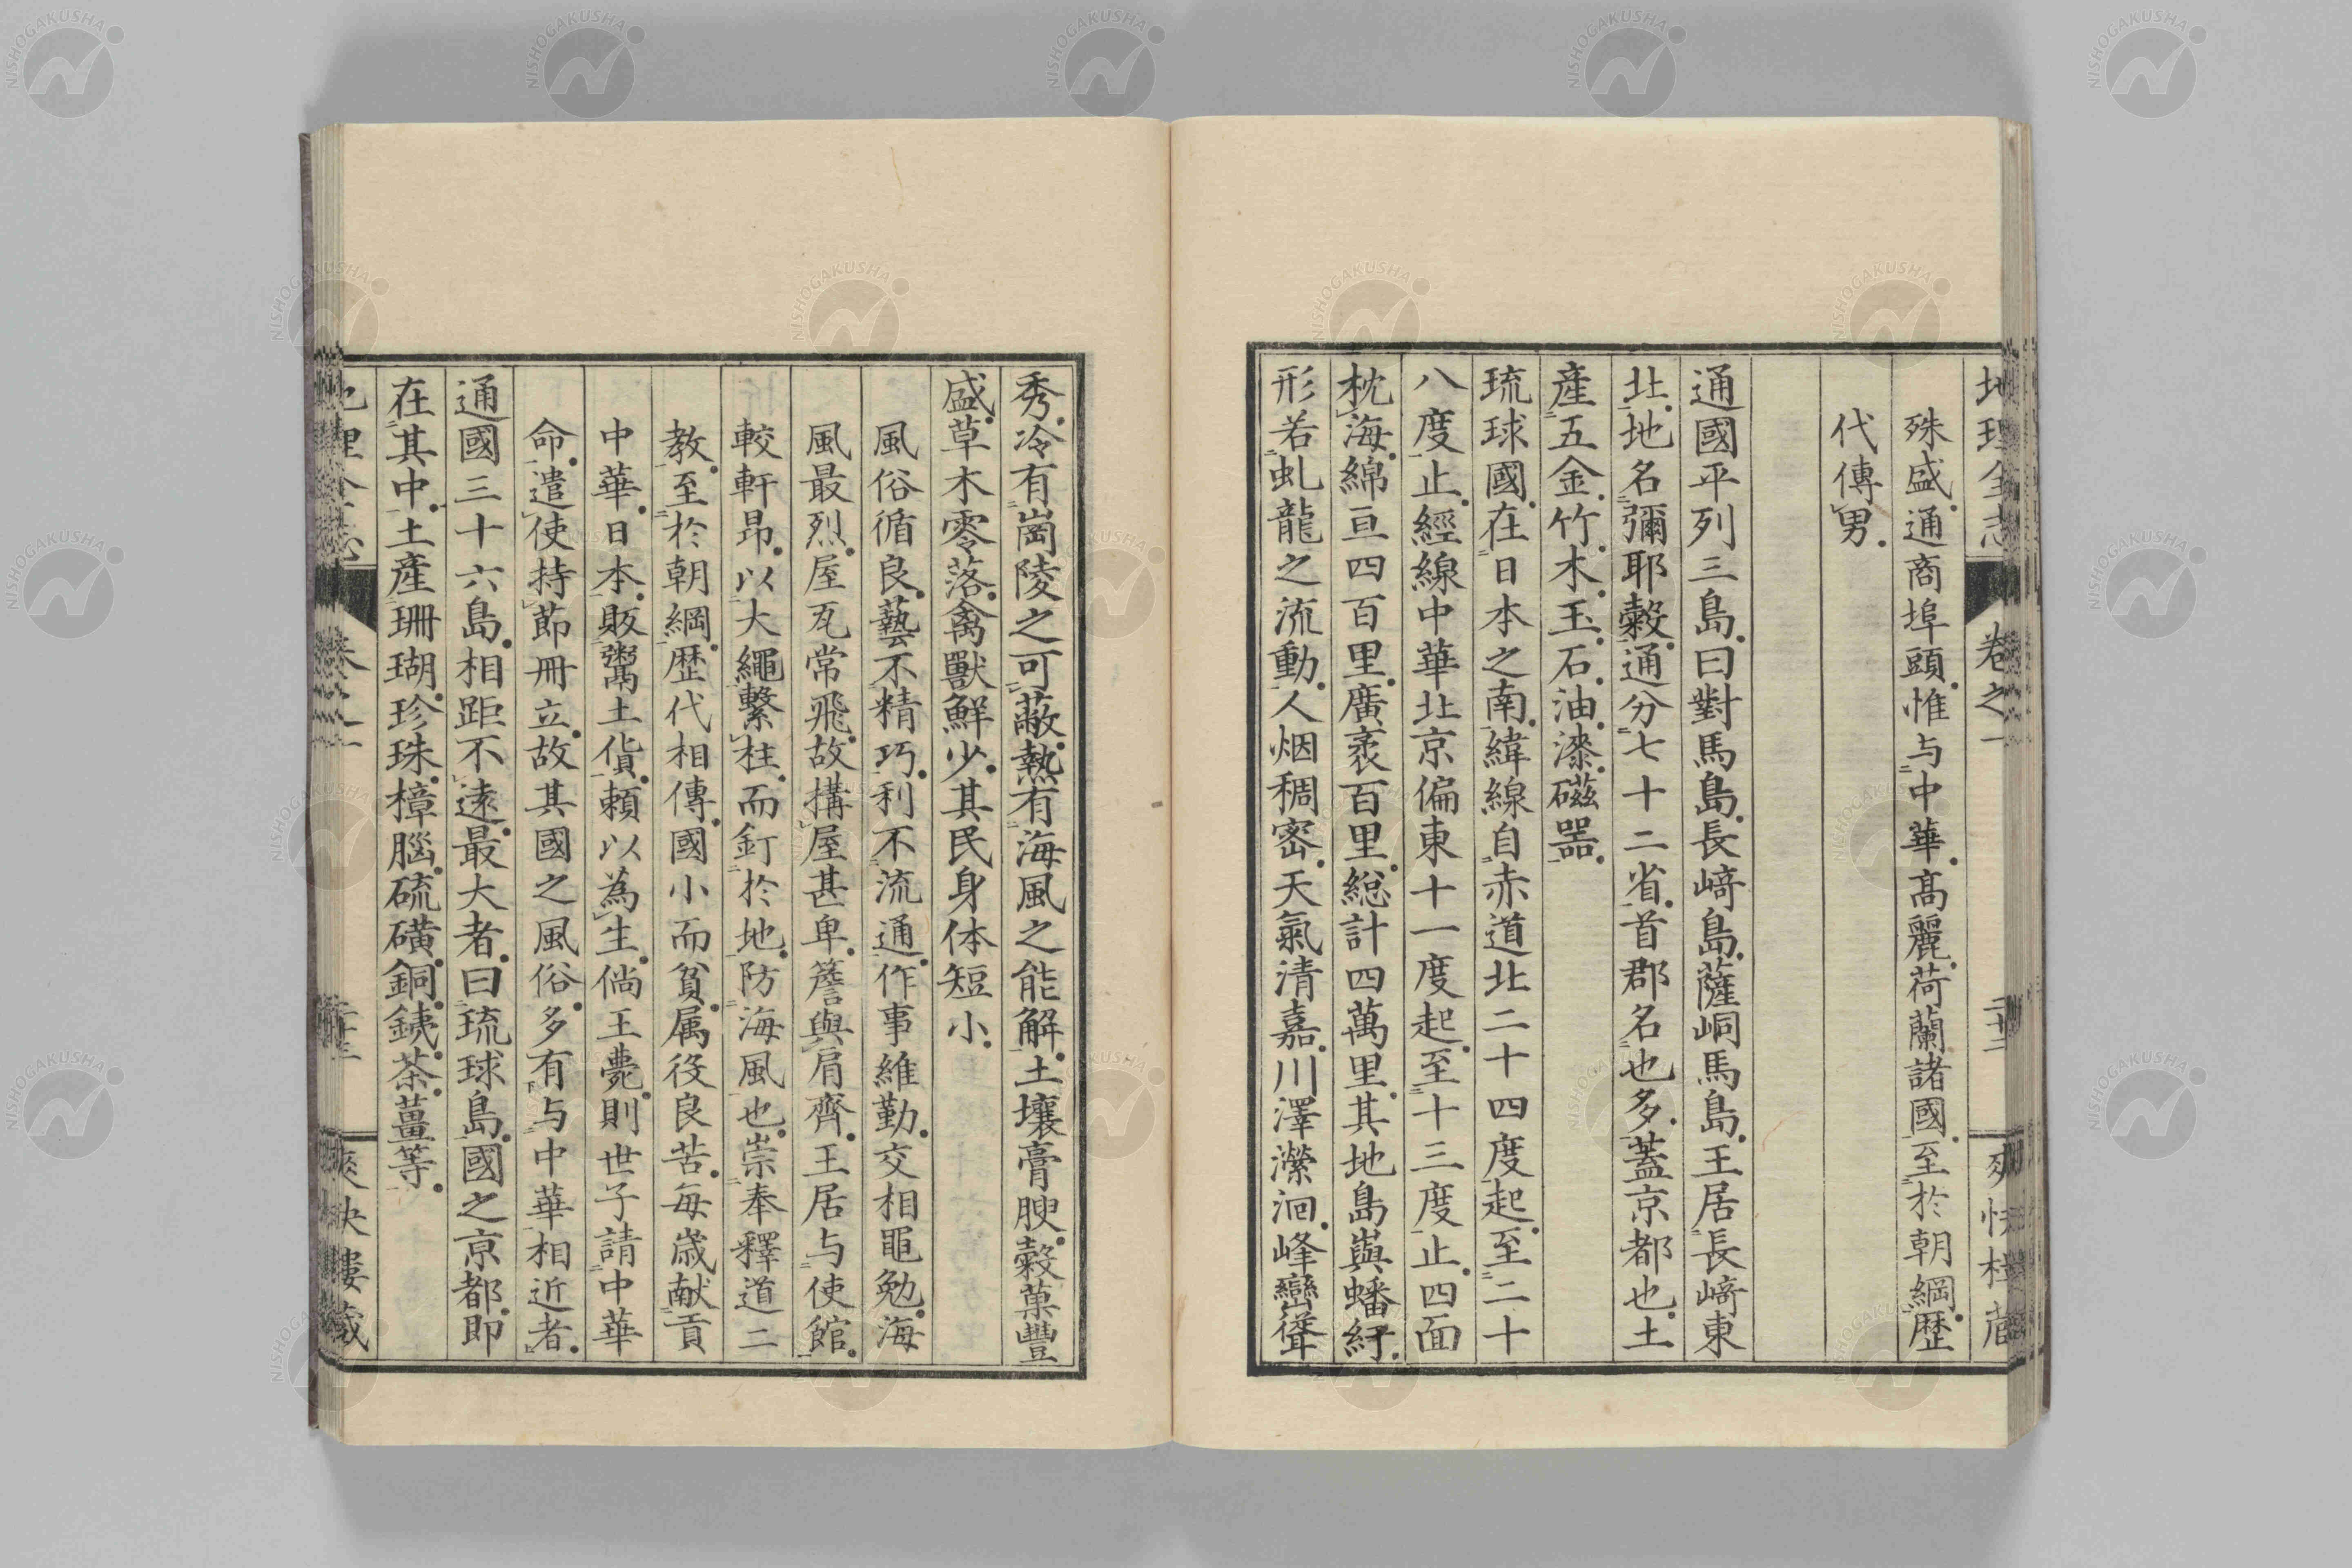 地理全志 卷之一 二十二 爽快樓藏
殊盛。通商埠頭。惟与中華。高麗。荷蘭諸國。至於朝綱。歴
代傳男。
通國平列三島。曰對馬島。長﨑島。薩峒馬島。王居長﨑東
北。地名彌耶穀。通分七十二省。首郡名也多。蓋京都也。土
產五金。竹。木。玉。石。油。漆。磁器。
琉球國。在日本之南。緯線自赤道北二十四度起。至二十
八度止。經線中華北京偏東十一度起。至十三度止。四面
枕海。綿亘四百里。廣袤百里。總計四萬里。其地島與蟠紆。
形若虬龍之流動。人烟稠密。天氣清嘉。川澤瀠洄。峰巒聳
秀。冷有崗陵之可蔽。熱有海風之能解。土壤膏腴。穀菓豐
盛。草木零落。禽獸鮮少。其民身体短小。
風俗循良。藝不精巧。利不流通。作事維勤。交相黽勉。海
風最烈。屋瓦常飛。故搆屋甚卑。簷與肩齊。王居与使館。
較軒昂。以大繩繫柱。而釘於地。防海風也。崇奉釋道二
教。至於朝綱。歴代相傳。國小而貧。属役良苦。每歳献貢
中華。日本。販鬻土貨。頼以為生。倘王薨。則世子請中華
命。遣使持節冊立。故其國之風俗。多有与中華相近者。
通國三十六島。相距不遠。最大者。曰琉球島。國之京都。即
在其中。土產珊瑚。珍珠。樟腦。硫磺。銅。銕。茶。薑等。
地理全志 卷之一 二十三 爽快樓藏
NISHOGAKUSHA